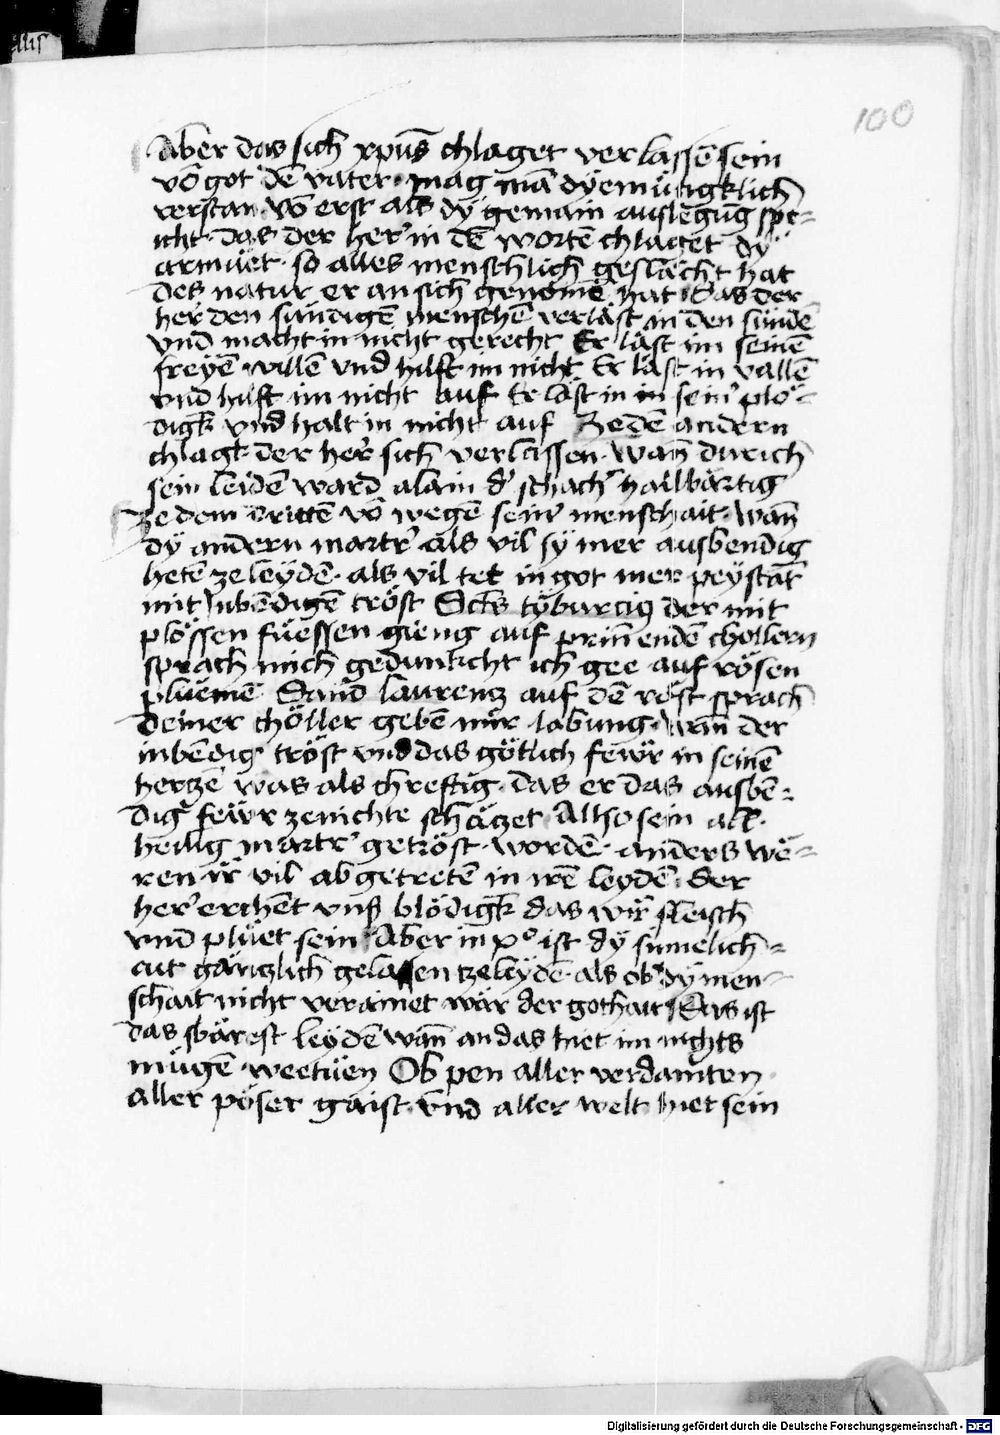 100
Aber das sich xpūs chlaget verlassē sein
vō got dē vater · mag mā dyemüngklich
verstan · vō erst als dÿ gemain auslegūg spr=
icht · das der her in dē wortē chlaget dÿ
armüet · so alles menschlich geslächt hat
des natur er an sich genomē hat · das der
her den sündigē menschē verläst in den sündē
vnd macht in nicht gerecht Er läst im seinē
freyē willē vnd hilft im nicht Er läst in vallē
vnd hilft im nicht auf Er läst in in sein' plö=
digk vnd halt in nicht auf Ze dē andern
chlagt der her sich verlassen · wan̄ durich
sein leidē ward alain d' schach' hailbärtig
Ze dem drittē vō wegē sein' menschait · wan̄
dÿ andern martr' als vil sÿ mer ausbendig
hetē ze leÿdē · als vil tet in got mer peÿstāt
mit inbēdigē tröst Sctūs tÿburciq der mit
plössen füessen gieng auf prin̄enden chollern
sprach mich gedunkcht ich gee auf rösen
plüemē Sand laurentz auf dē röst sprach
deiner chöller gebē mir labung · wan̄ der
inbēdig tröst vnd das götlich fewr in seinē
hertzē was als chreftig · das er das ausbē=
dig fewr ze nichte schätzet Allso sein all
heilig martr' getröst wordē · anders wë=
ren ir vil abgetretē in irē leydē · der
her erchēt vns̄ blödigk das wir fleisch
vnd plüet sein Aber in xº ist dÿ sinnelich=
ait gäntzlich gelassen ze leydē · als ob dÿ men=
schait nicht verainet wär der gothait Das ist
das sbärest leÿdē wan̄ an das hiet im nichts
mügē wee tüen Ob pen aller verdamten
aller pöser gaist · vnd aller welt hiet sein
Digitalisierung gefördert durch die Deutsche Forschungsgemeinschaft - DFG